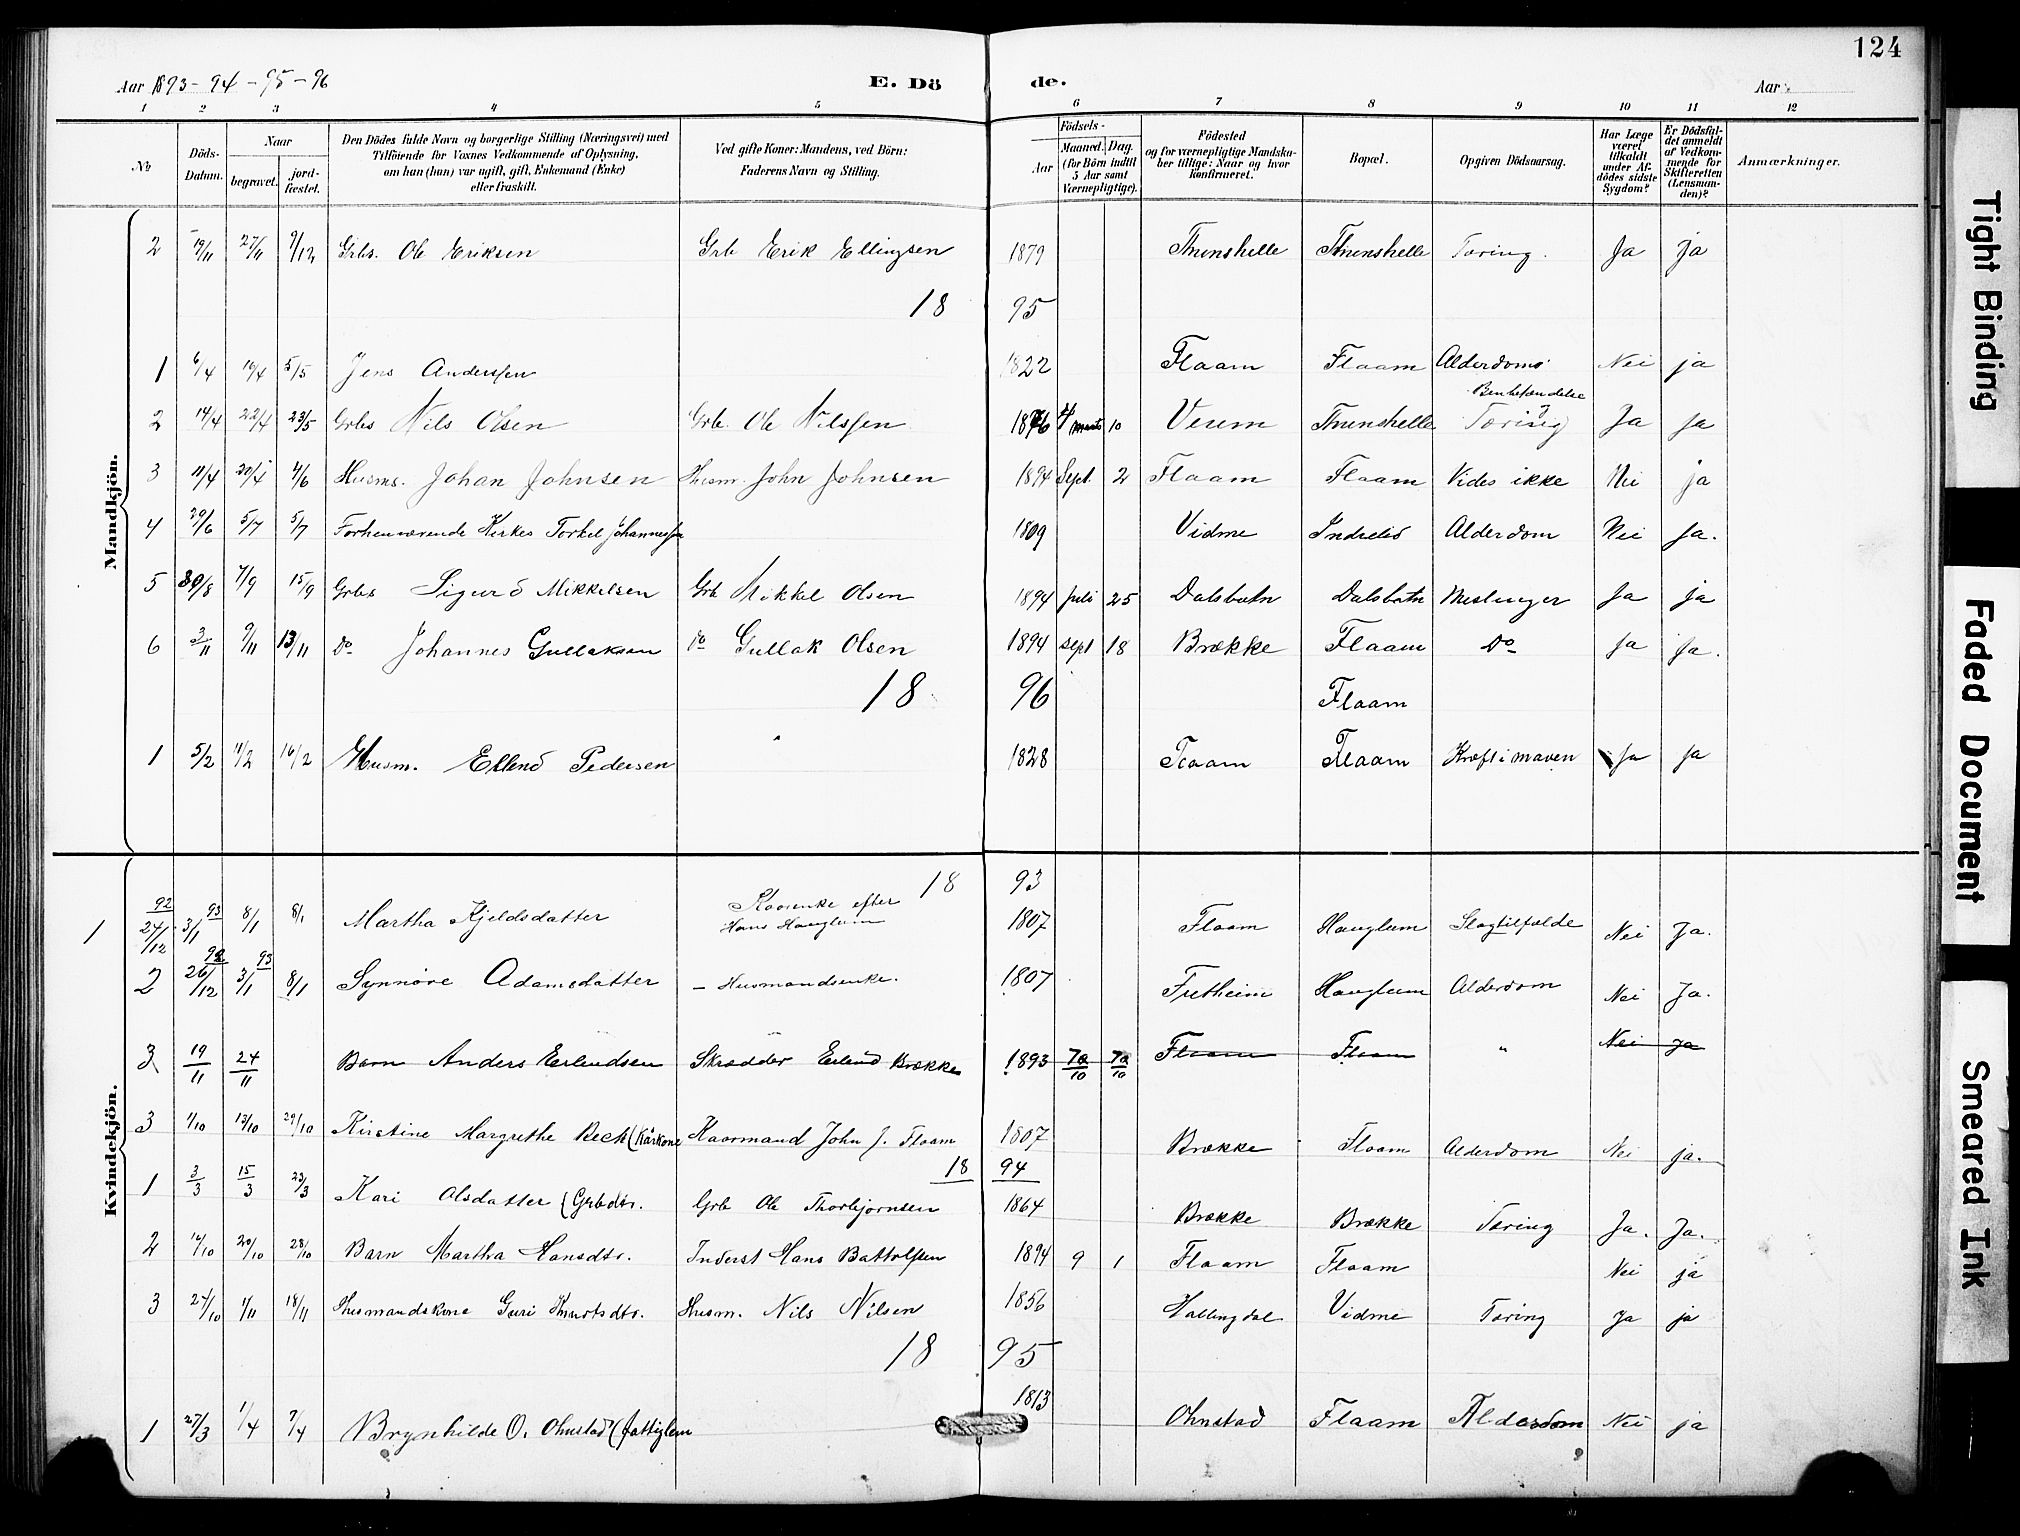 124
Aar 1893-94-95-96 E. Dö de. Aar
1 2 3 4 5 6 7 8 9 10 11 12
No
Döds-Datum.
Naar begravet. jordfæstet.
Den Dödes fulde Navn og borgerlige Stilling (Næringsvei) med Tilföiende for Voxnes Vedkommende af Oplysning, om han (hun) var ugift, gift, Enkemand (Enke) eller fraskilt.
Ved gifte Koner: Mandens, ved Börn: Faderens Navn og Stilling.
Födsels-
Aar Maaned. Dag.
(for Börn indtil 5 Aar samt Værnepligtige).
Födested og for værnepligtige Mandskaber tillige: Naar og hvor konfirmeret.
Bopæl.
Opgiven Dödsaarsag.
Har Læge været tilkaldt under Afdödes sidste Sygdom?
Er Dödsfaldet anmeldt af Vedkommende for Skifteretten (Lensmanden)?
Anmærkninger.
Mandkjön.
2 19/11 27/11 9/12 Grbs. Ole Eriksen Grb Erik Ellingsen 1879 Thunshelle Thunshelle Tæring. Ja ja
18 95
1 6/4 16/4 5/5 Jens Anderssen 1822 Flaam Flaam Alderdoms Nei ja
2 14/4 22/4 23/5 Grbs Nils Olsen Grb. Ole Nilssen 1876 marts 10 Verem Thunshelle Benbetændelse Tæring Ja ja
3 11/4 20/4 4/6 Husms. Johan Johnsen Husm. John Johnsen 1894 Sept. 2 Flaam Flaam Vides ikke Nei ja
4 29/6 5/7 5/7 Forhenværende Kirkes Torkel Johannessen 1809 Vidme Indrelid Alderdom Nei Ja.
5 30/8 7/9 15/9 Grbs Sigurd Mikkelsen Grb Mikkel Olsen 1894 juli 25 Dalsbotn Dalsbotn Meslinger Ja ja
6 3/11 9/11 13/11 Do Johannes Gullaksen Do Gullak Olsen 1894 sept 18 Brække Flaam Do Ja Ja.
18 96 Flaam
1 5/2 11/2 16/2 Husm. Ellend Pedersen 1828 Flaam Flaam Kræft i maven Ja Ja
Kvindekjön.
18 93
1 92 24/12 93 3/1 8/1 8/1 Martha Kjeldsdatter Kaarenke efter Hans Hauglum 1807 Flaam Hauglum Slagtilfælde Nei Ja.
2 92 26/12 93 3/1 8/1 Synnøve Adamsdatter - Husmandsenke. 1807 Fretheim Hauglum Alderdom Nei Ja.
3 19/11 24/11 Barn Anders Erlendsen Skrædder Erlend Brække 1893 Flaam Flaam " Nei Ja
3 1/10 13/10 29/10 Kirstine Margrethe Beck (Kårkone Kaarmand John J. Flaam 1807 Brække Flaam Alderdom Nei ja.
18 94
1 3/3 15/3 23/3 Kari Olsdatter (Grbdtr. Grb Ole Thorbjørnsen 1864 Brække Brække Tæring Ja. Ja.
2 14/10 20/10 28/10 Barn Martha Hansdtr. Inderst Hans Battolfsen 1894 9 1 Flaam Flaam Nei ja
3 27/10 1/11 18/11 Husmandskone Guri Knutsdtr. Husm. Nils Nilsen 1856 Hallingdal Vidme Tæring Ja ja
18 95
1 27/3 1/4 7/4 Brynhilde O. Ohnstad (fattiglem 1813 Ohnstad Flaam Alderdom Nei ja
Tight Binding
Faded Document
Smeared Ink